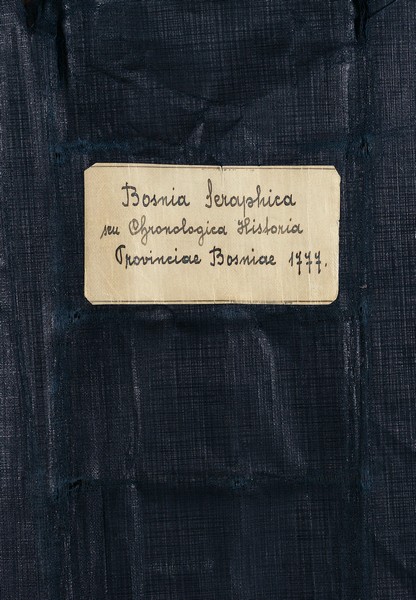 Bosnia Seraphica
seu Chronologica Historia
Provinciae Bosniae 1777.